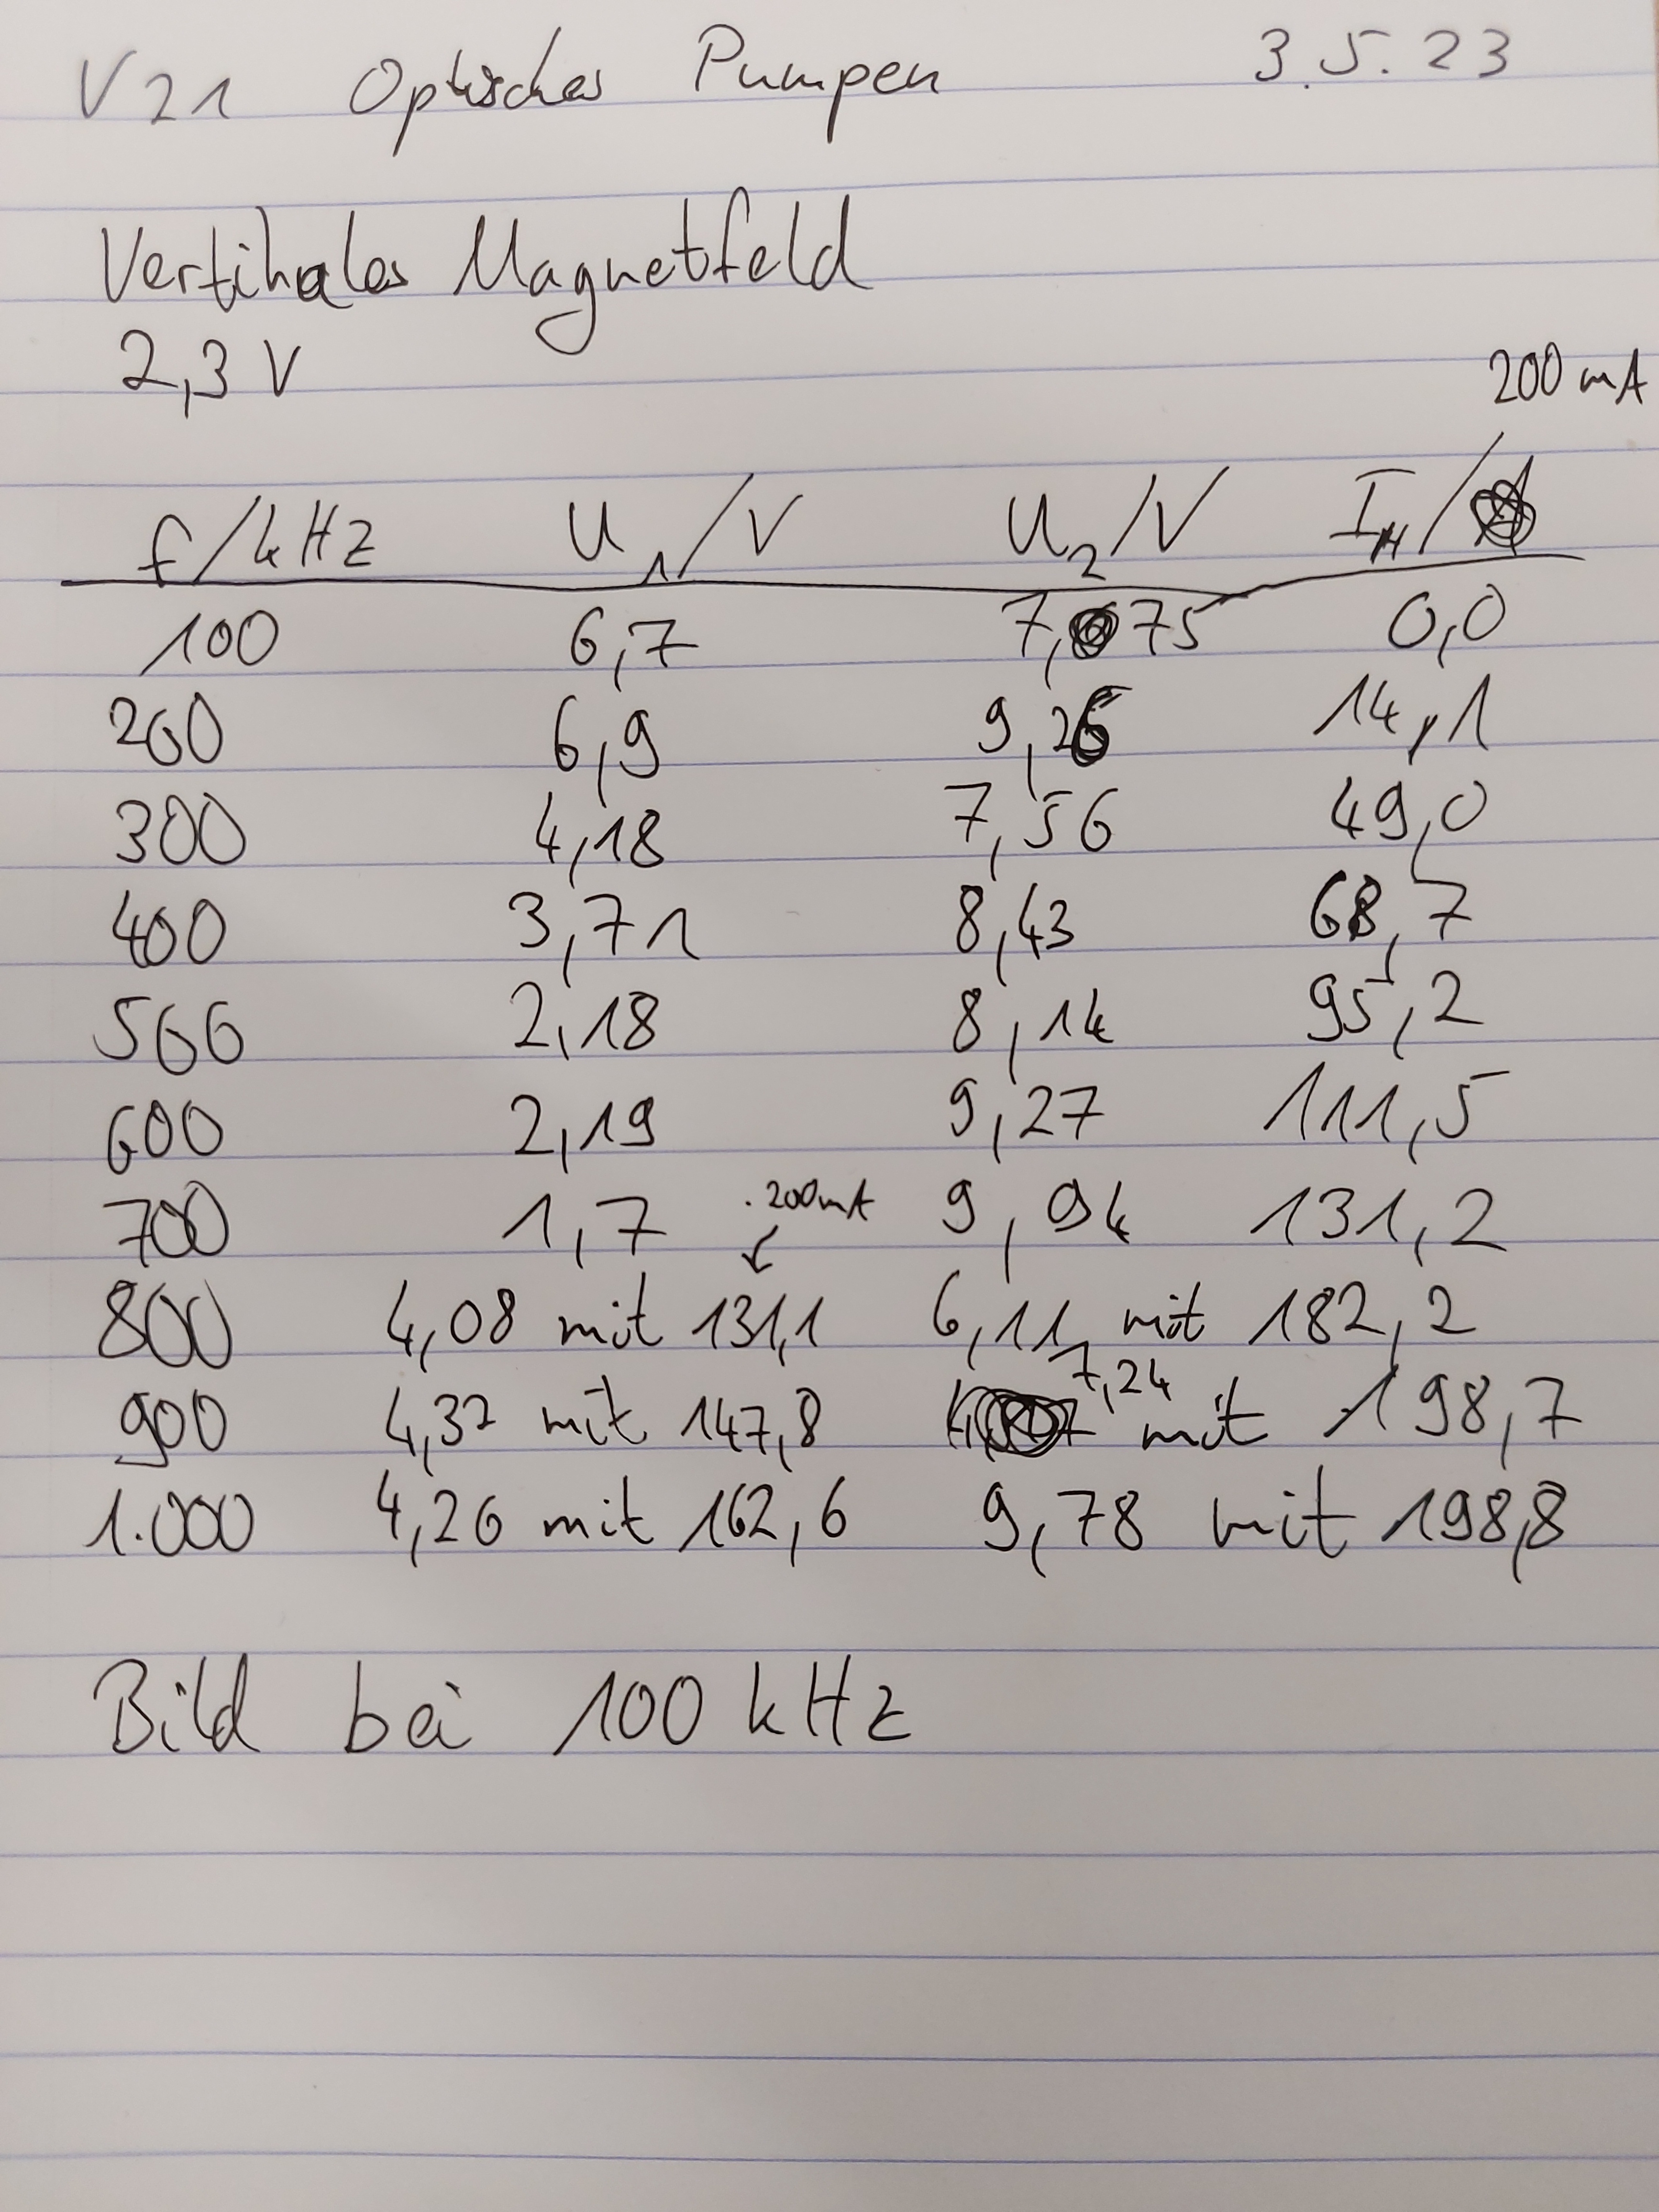 V21 Optisches Pumpen 3.5.23
Vertikales Magnetfeld
2,3 V
200 mA
f/kHz U1/V U2/V IH/
100 6,7 7,75 0,0
200 6,9 9,26 14,1
300 4,18 7,56 49,0
400 3,71 8,43 68,7
500 2,18 8,14 95,2
600 2,19 9,27 111,5
700 1,7 9,94 131,2
· 200mA
800 4,08 mit 131,1 6,11 mit 182,2
900 4,32 mit 147,8 7,24 mit 198,7
1.000 4,26 mit 162,6 9,78 mit 198,8
Bild bei 100 kHz